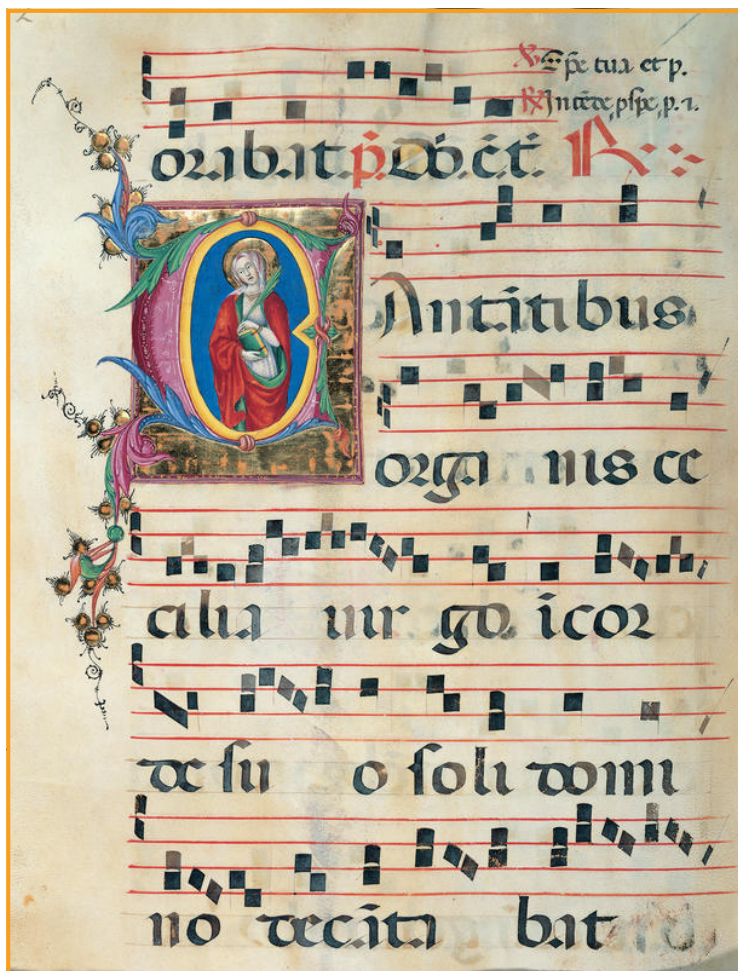 ℣ Spē tua et p.
℟ Intēde, pſpe, p. 1.
orabat. p̄. Dō. c̄t̄. ℟
CAntātibus
orga nis ce
cilia uir go. ī cor
de ſu o ſoli domi
no decāta bat